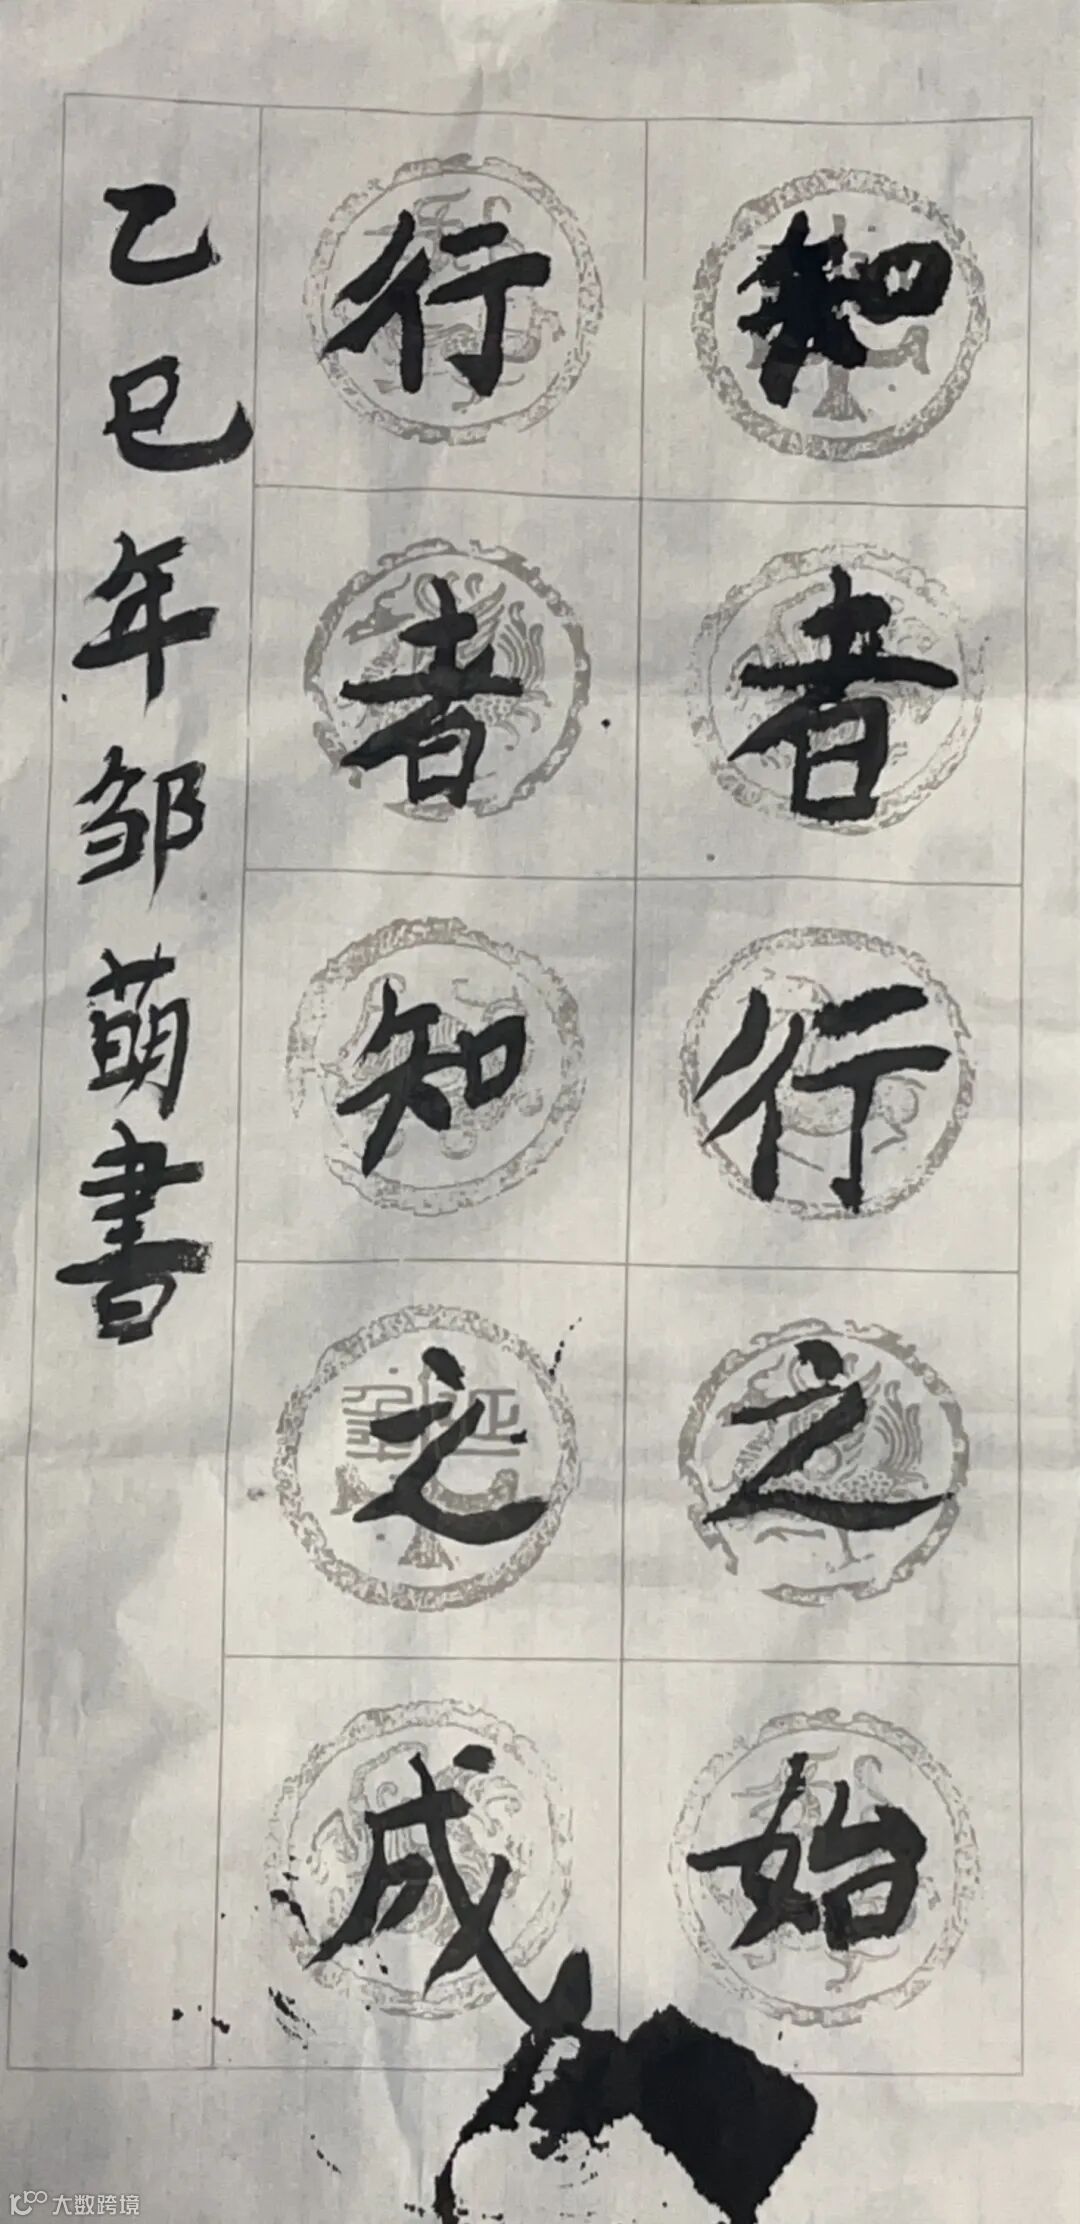 知者行之始
行者知之成
乙巳年邹萌書
大数跨境